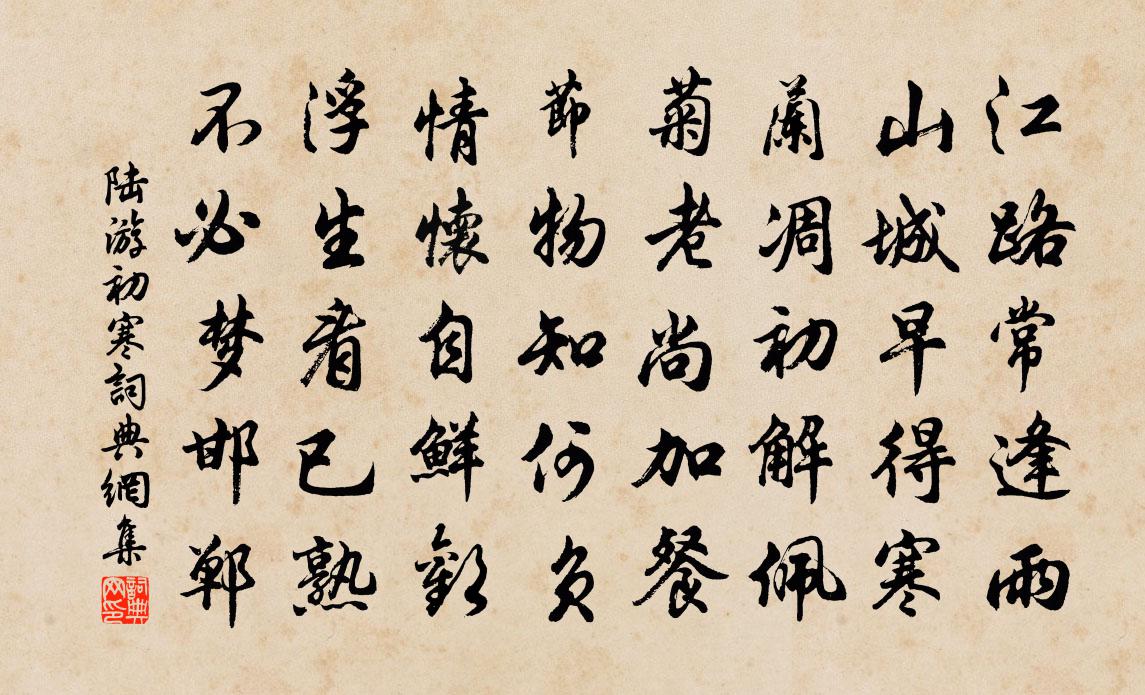 江路常逢雨
山城早得寒
蘭凋初解佩
菊老尚加餐
節物知何負
情懷自鮮歡
浮生看已熟
不必梦邯鄲
陆游初寒詞典網集
詞典網印